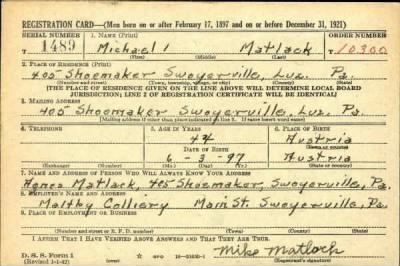 REGISTRATION CARD—(Men born on or after February 17, 1897 and on or before December 31, 1921)
SERIAL NUMBER 1. NAME (Print) ORDER NUMBER
T 1489 Michael Matlack T10300
(First) (Middle) (Last)
2. PLACE OF RESIDENCE (Print)
405 Shoemaker Swoyerville, Luz. Pa.
(Number and street) (Town, township, village, or city) (County) (State)
[THE PLACE OF RESIDENCE GIVEN ON THE LINE ABOVE WILL DETERMINE LOCAL BOARD
JURISDICTION; LINE 2 OF REGISTRATION CERTIFICATE WILL BE IDENTICAL]
3. MAILING ADDRESS
405 Shoemaker Swoyerville, Luz. Pa.
[Mailing address if other than place indicated on line 2. If same insert word same]
4. TELEPHONE 5. AGE IN YEARS 6. PLACE OF BIRTH
44 Austria
DATE OF BIRTH (Town or county)
6 - 3 - 97 Austria
(Exchange) (Number) (Mo.) (Day) (Yr.) (State or country)
7. NAME AND ADDRESS OF PERSON WHO WILL ALWAYS KNOW YOUR ADDRESS
Agnes Matlack, 405 Shoemaker, Swoyerville, Pa.
8. EMPLOYER'S NAME AND ADDRESS
Maltby Colliery Main St. Swoyerville, Pa.
9. PLACE OF EMPLOYMENT OR BUSINESS
(Number and street or R. F. D. number) (Town) (County) (State)
I AFFIRM THAT I HAVE VERIFIED ABOVE ANSWERS AND THAT THEY ARE TRUE.
D. S. S. Form 1 Mike Matlach
(Revised 1-1-42) (over) GPO (Registrant's signature)